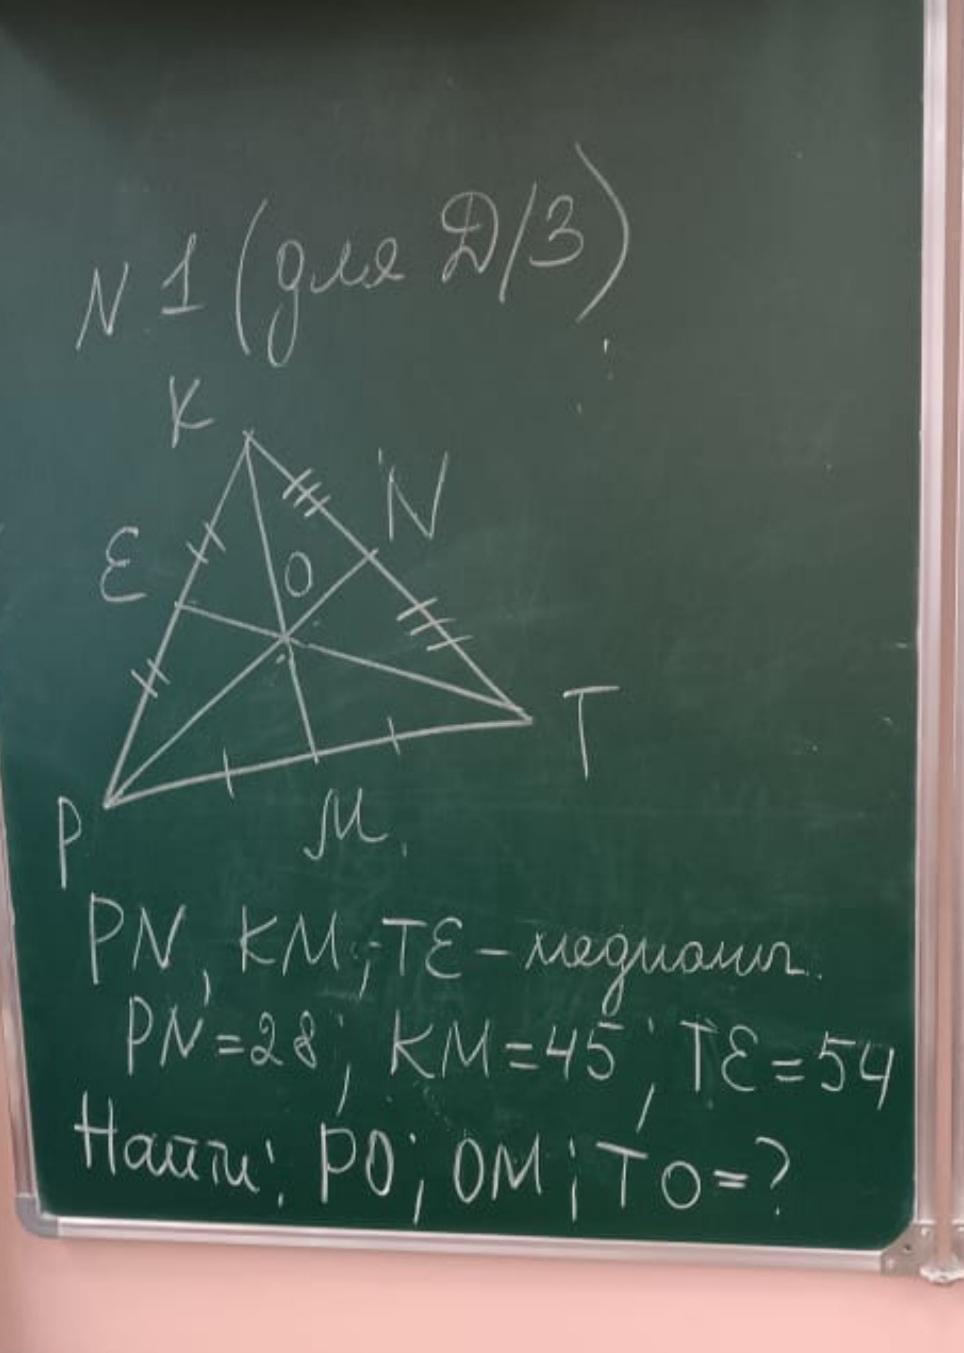 N 1 (для Д/З)
K
N
E
O
T
P
M
PN, KM; TE - медианы.
PN = 28; KM = 45; TE = 54
Найти: PO; OM; TO = ?